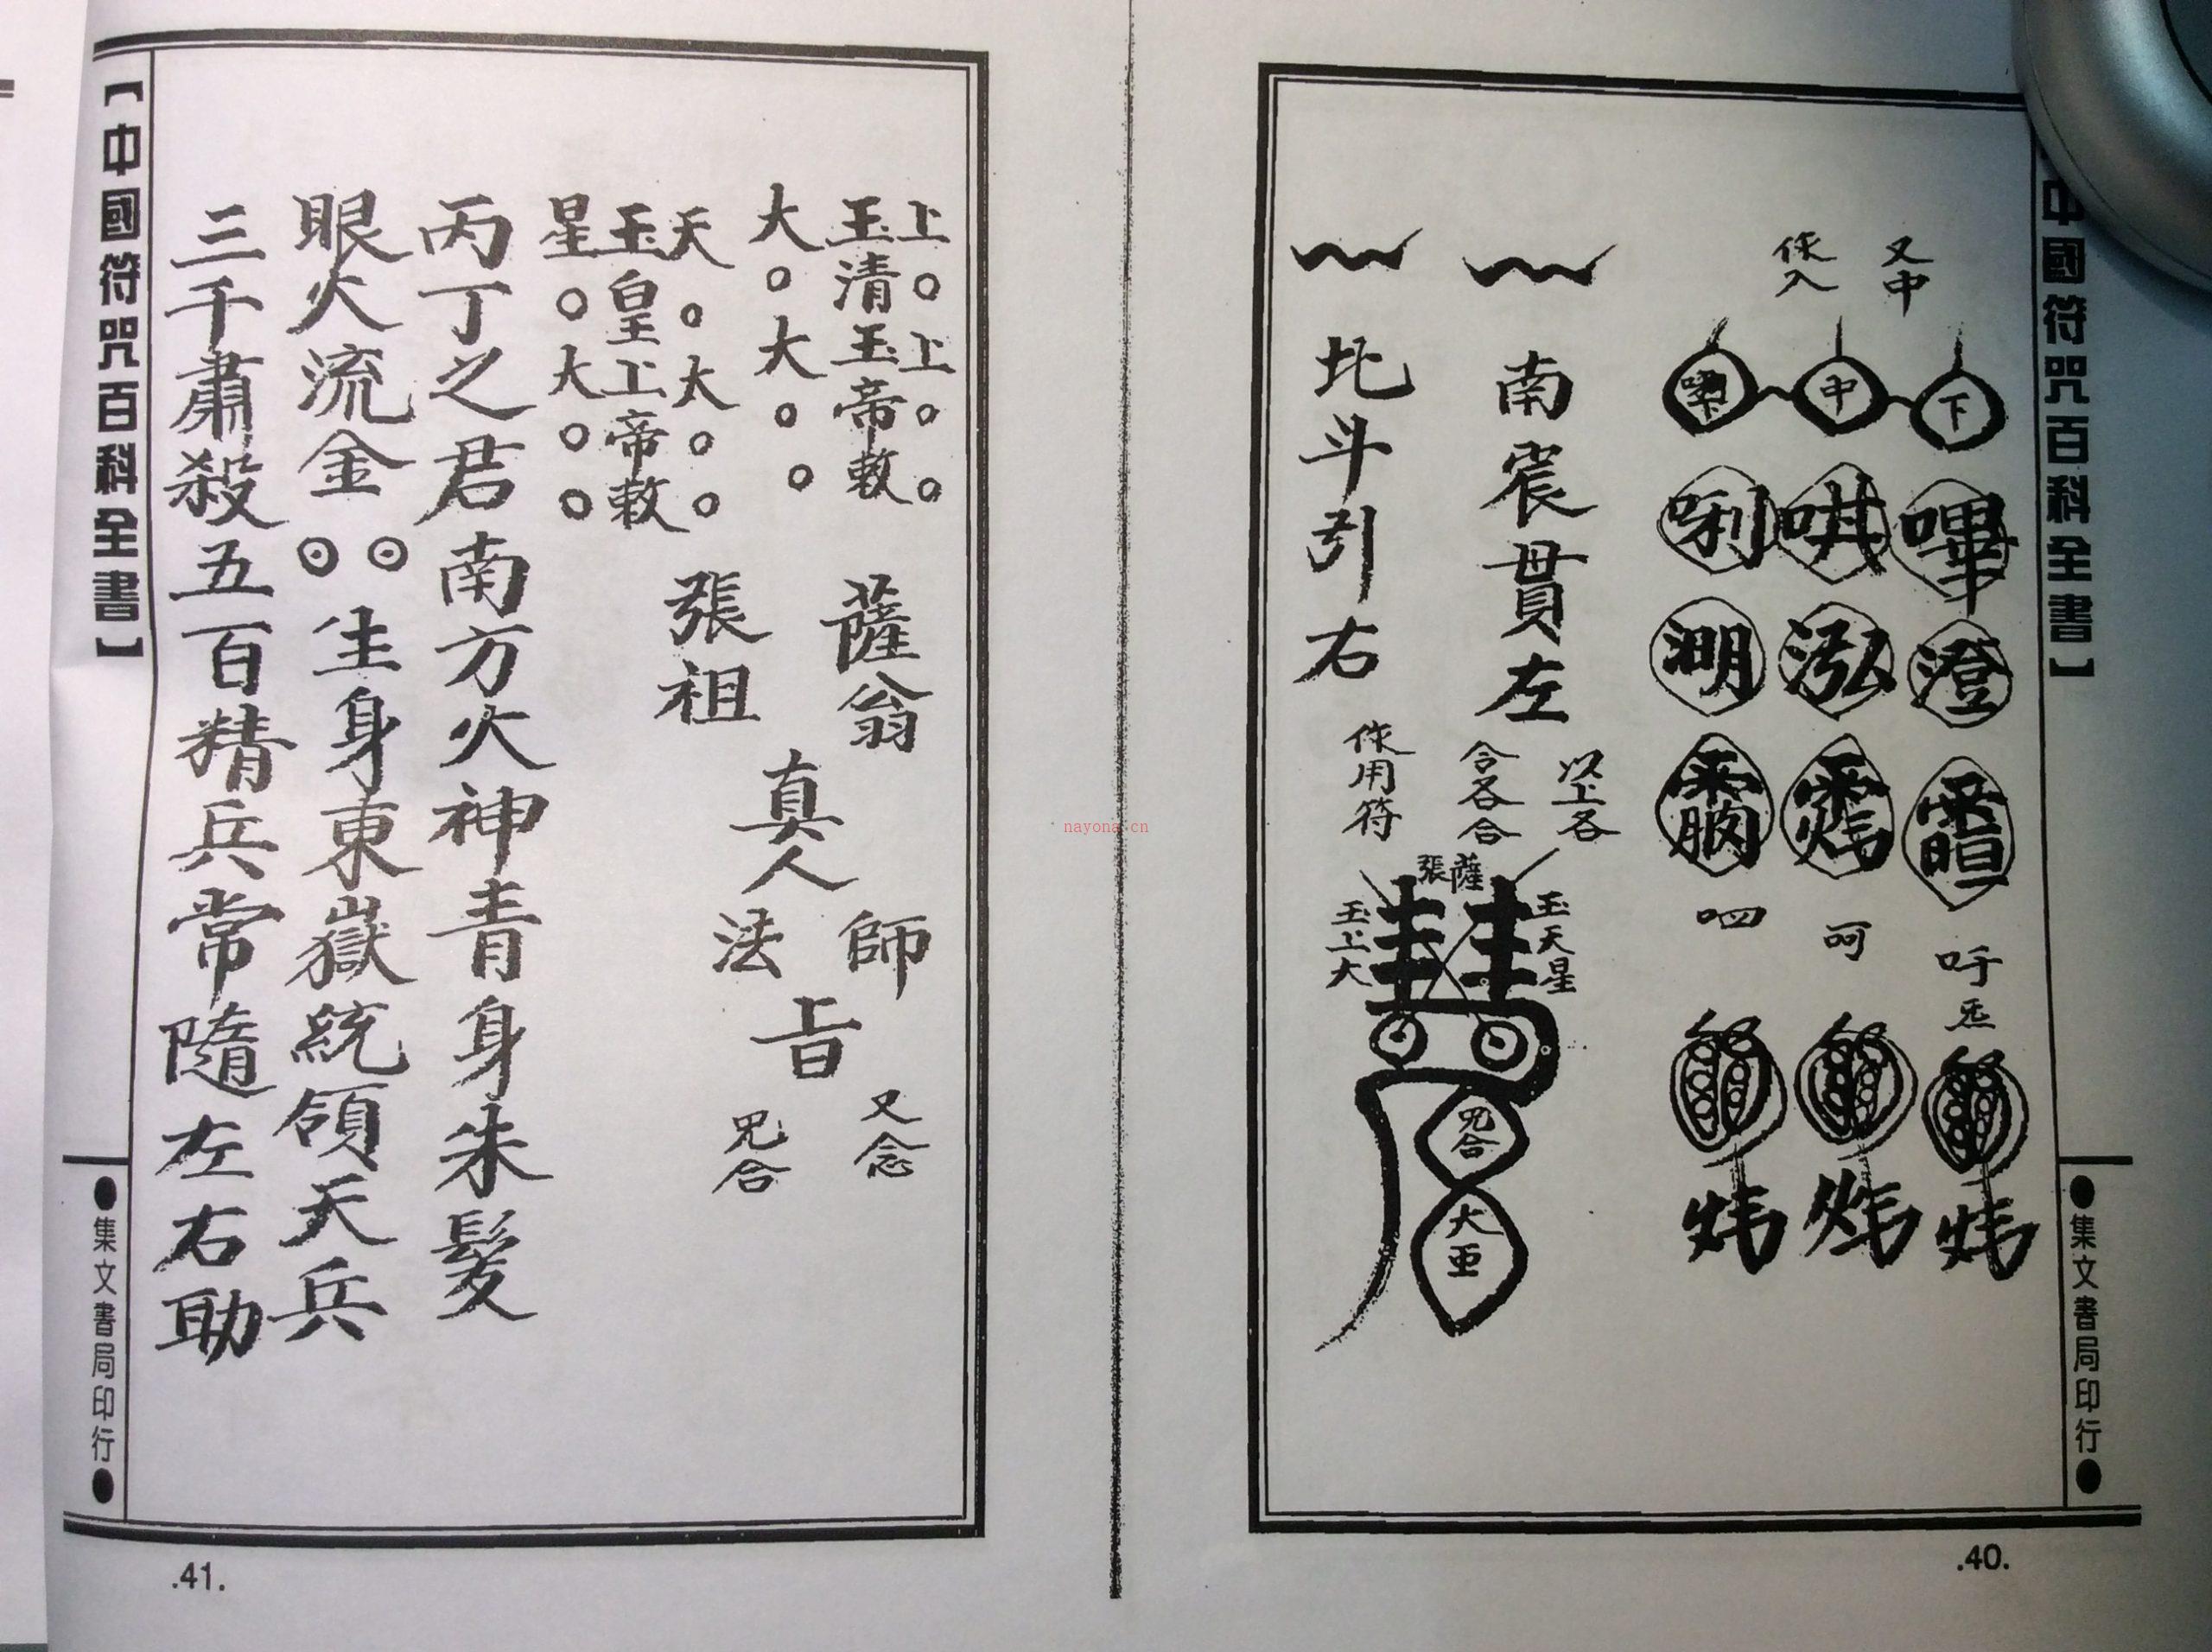 中國符咒百科全書】
●集文書局印行●
又中
作入
下
中
嗶
唭
唎
澄
泓
溯
吽
呵
呬
炜
炜
炜
南宸貫左
以上各
合各合
北斗引右
作用符
薩
張
玉天星
玉上大
咒合
大
亜
.40.
上○上○○
玉清玉帝敕
大○大○○
天○大○○
玉皇上帝敕
星○大○○
薩翁
張祖
真人
師
法
旨
又念
咒合
丙丁之君南方火神青身朱髮
眼火流金⊙⊙生身東嶽統領天兵
三千肅殺五百精兵常隨左右助
【中國符咒百科全書】
●集文書局印行●
.41.
nayona.cn